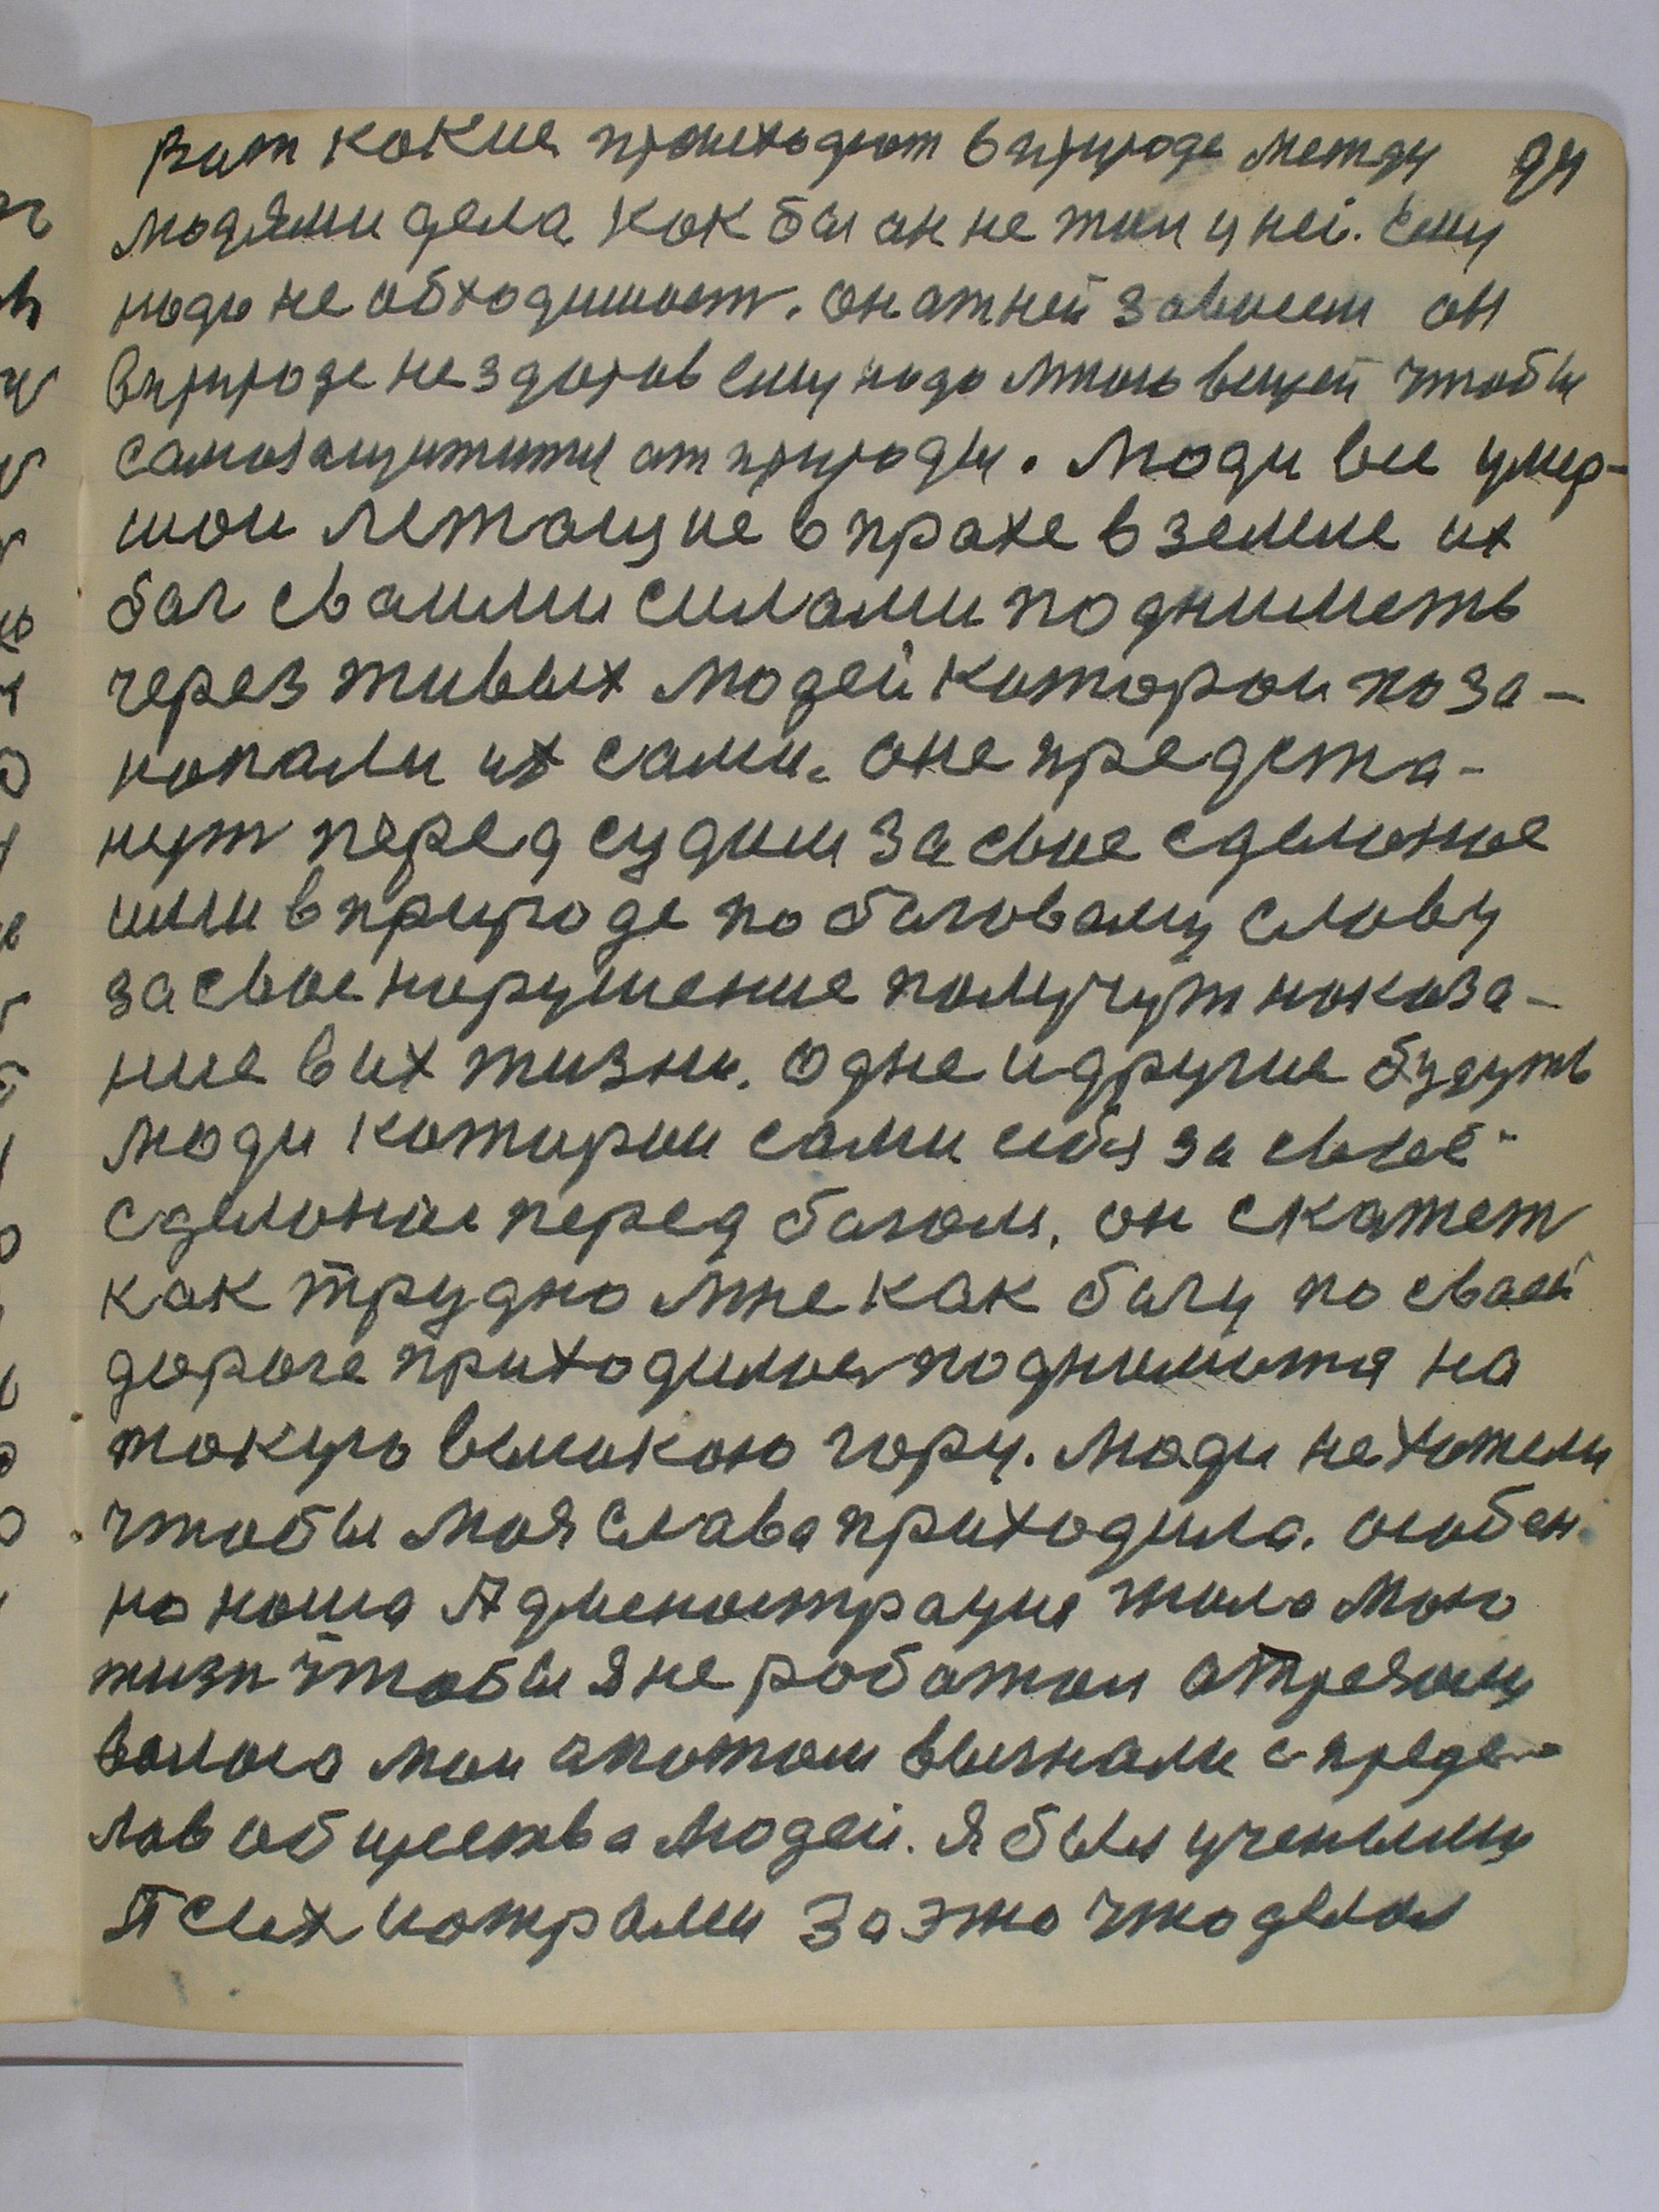 Вот какие происходят в природе между 94
людями дела как бы он не жил у ней. Ему
надо не обходимост. он от ней зависем он
в природе не здоров ему надо много вещей чтобы
самозащитится от природы. Люди все умер-
шои лежащие в прахе в земле их
бог сваими силами подниметь
через живых людей которои поза-
копали их сами. Оне предста-
нут перед судом за свое сделоное
ими в природе по боговому слову
за свое нарушение получут наказа-
ние в их жизни. Одне и другие будуть
люди которои сами себя за своё
сделоное перед богом. он скажет
как трудно мне как богу по сваей
дороге приходилос подниматя на
такую высокою гору. Люди не хотели
чтобы моя слава приходила. особен-
но наша Администрация жала мою
жизн чтобы я не работал отрезали
волоса мои а потом выгнали с преде-
лов общества людей. Я был учеными
Псих иатрами за это что делал